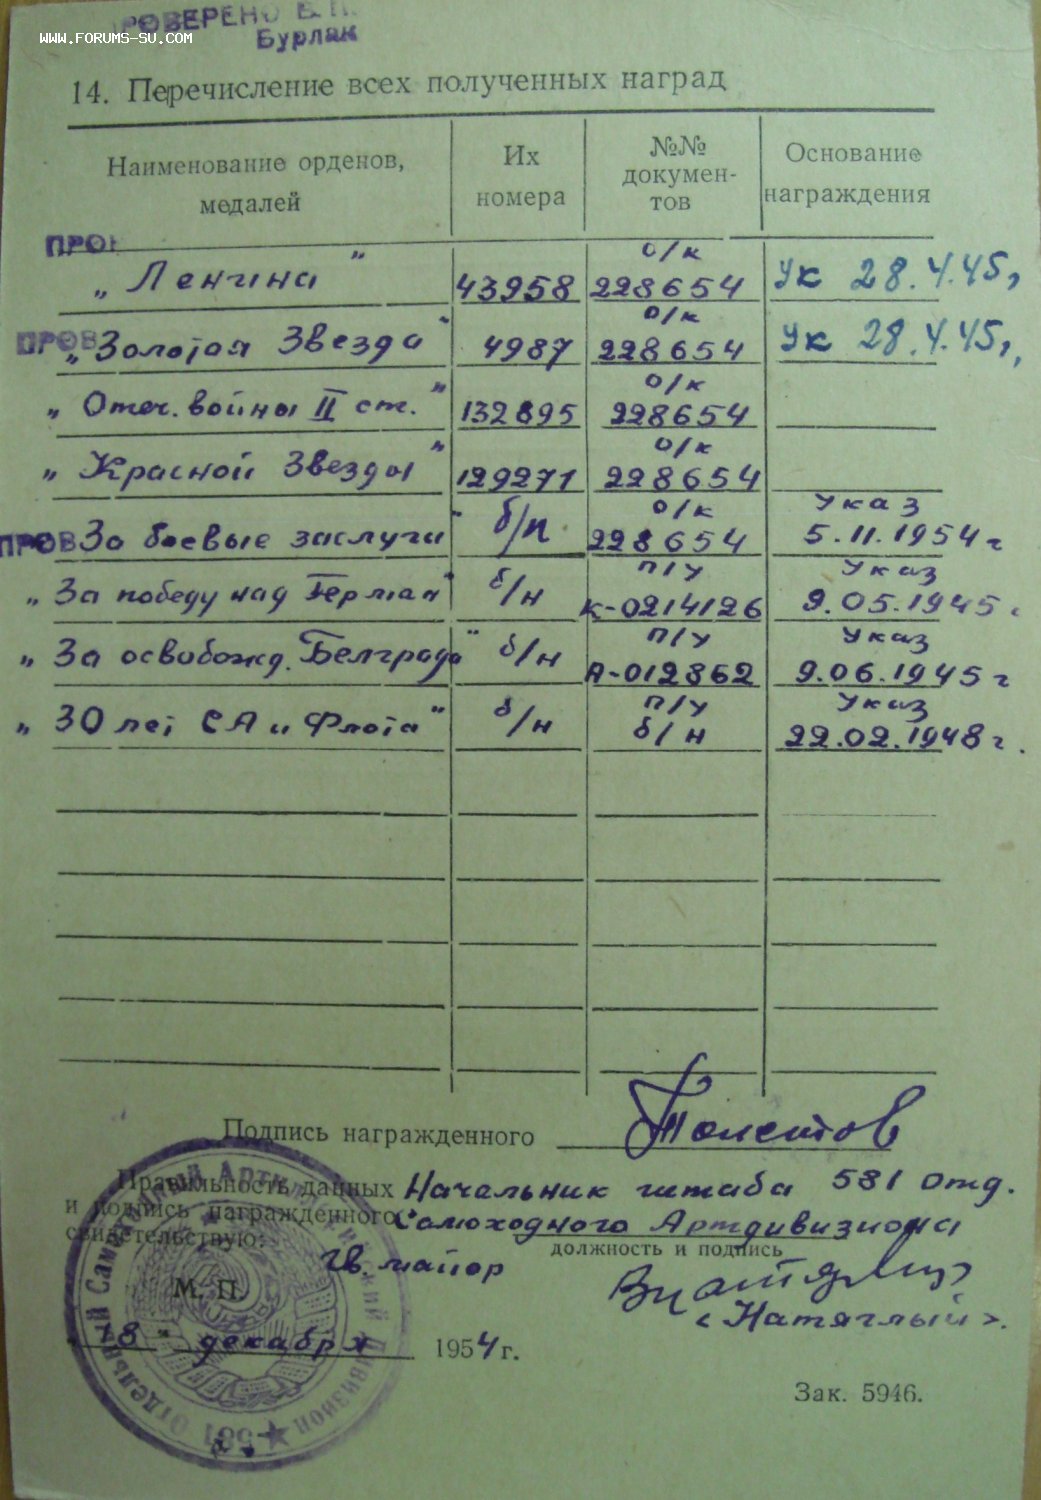 ПРОВЕРЕНО В.
WWW.FORUMS-SU.COM
Бурлак
14. Перечисление всех полученных наград
Наименование орденов, медалей | Их номера | №№ документов | Основание награждения
ПРО
„Ленина" | 43958 | о/к 228654 | Ук 28.4.45г
ПРОВ
„Золотая Звезда" | 4987 | о/к 228654 | Ук 28.4.45г.
„Отеч. войны II ст." | 132895 | о/к 228654
„Красной Звезды" | 129271 | о/к 228654
ПРОВ
За боевые заслуги" | б/н | о/к 228654 | Указ 5.11.1954г
„За победу над Герман" | б/н | п/у К-0214126 | Указ 9.05.1945г
„За освобожд. Белграда" | б/н | п/у А-012862 | Указ 9.06.1945г
„30 лет СА и Флота" | б/н | п/у б/н | Указ 22.02.1948г.
Подпись награжденного
Правильность данных
и подпись награжденного
свидетельствую:
Начальник штаба 581 отд.
Самоходного Артдивизиона
должность и подпись
Гв. майор
<Натяглый>.
М. П.
"18" декабря 1954 г.
Зак. 5946.
581 Отдельный Самоходный Артиллерийский Дивизион